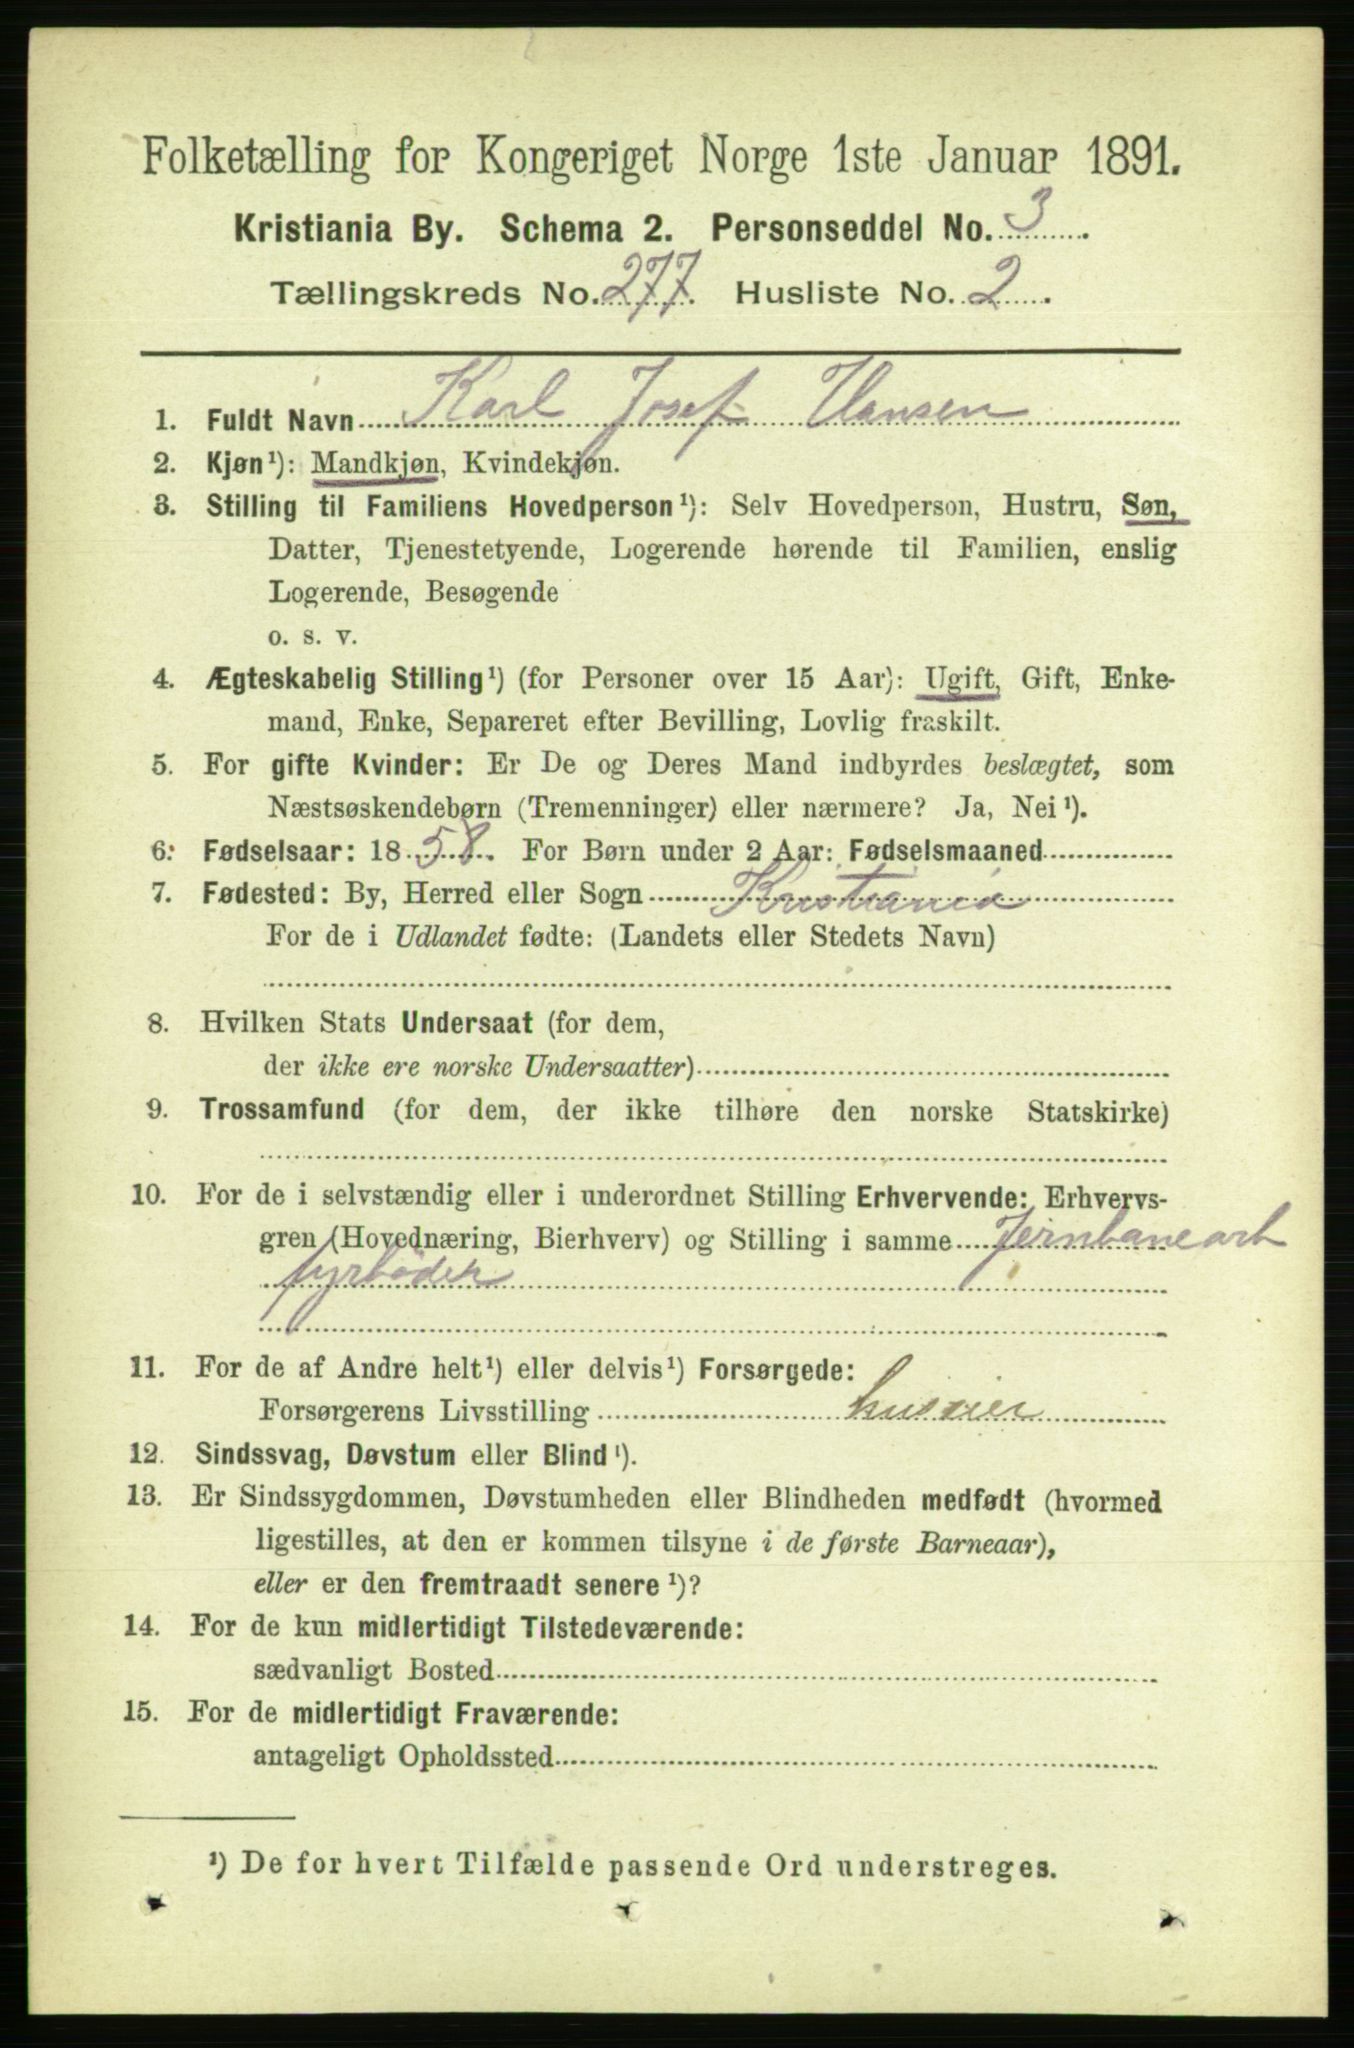 Folketælling for Kongeriget Norge 1ste Januar 1891.
Kristiania By. Schema 2. Personseddel No. 3.
Tællingskreds No. 277. Husliste No. 2.
1. Fuldt Navn Karl Josef Hansen
2. Kjøn¹): Mandkjøn, Kvindekjøn.
3. Stilling til Familiens Hovedperson¹): Selv Hovedperson, Hustru, Søn,
Datter, Tjenestetyende, Logerende hørende til Familien, enslig
Logerende, Besøgende
o. s. v.
4. Ægteskabelig Stilling¹) (for Personer over 15 Aar): Ugift, Gift, Enke-
mand, Enke, Separeret efter Bevilling, Lovlig fraskilt.
5. For gifte Kvinder: Er De og Deres Mand indbyrdes beslægtet, som
Næstsøskendebørn (Tremenninger) eller nærmere? Ja, Nei¹).
6. Fødselsaar: 1858. For Børn under 2 Aar: Fødselsmaaned
7. Fødested: By, Herred eller Sogn Kristiania
For de i Udlandet fødte: (Landets eller Stedets Navn)
8. Hvilken Stats Undersaat (for dem,
der ikke ere norske Undersaatter)
9. Trossamfund (for dem, der ikke tilhøre den norske Statskirke)
10. For de i selvstændig eller i underordnet Stilling Erhvervende: Erhvervs-
gren (Hovednæring, Bierhverv) og Stilling i samme Jernbanearb
fyrbøder
11. For de af Andre helt¹) eller delvis¹) Forsørgede:
Forsørgerens Livsstilling
12. Sindssvag, Døvstum eller Blind¹).
13. Er Sindssygdommen, Døvstumheden eller Blindheden medfødt (hvormed
ligestilles, at den er kommen tilsyne i de første Barneaar),
eller er den fremtraadt senere¹)?
14. For de kun midlertidigt Tilstedeværende:
sædvanligt Bosted
15. For de midlertidigt Fraværende:
antageligt Opholdssted
¹) De for hvert Tilfælde passende Ord understreges.